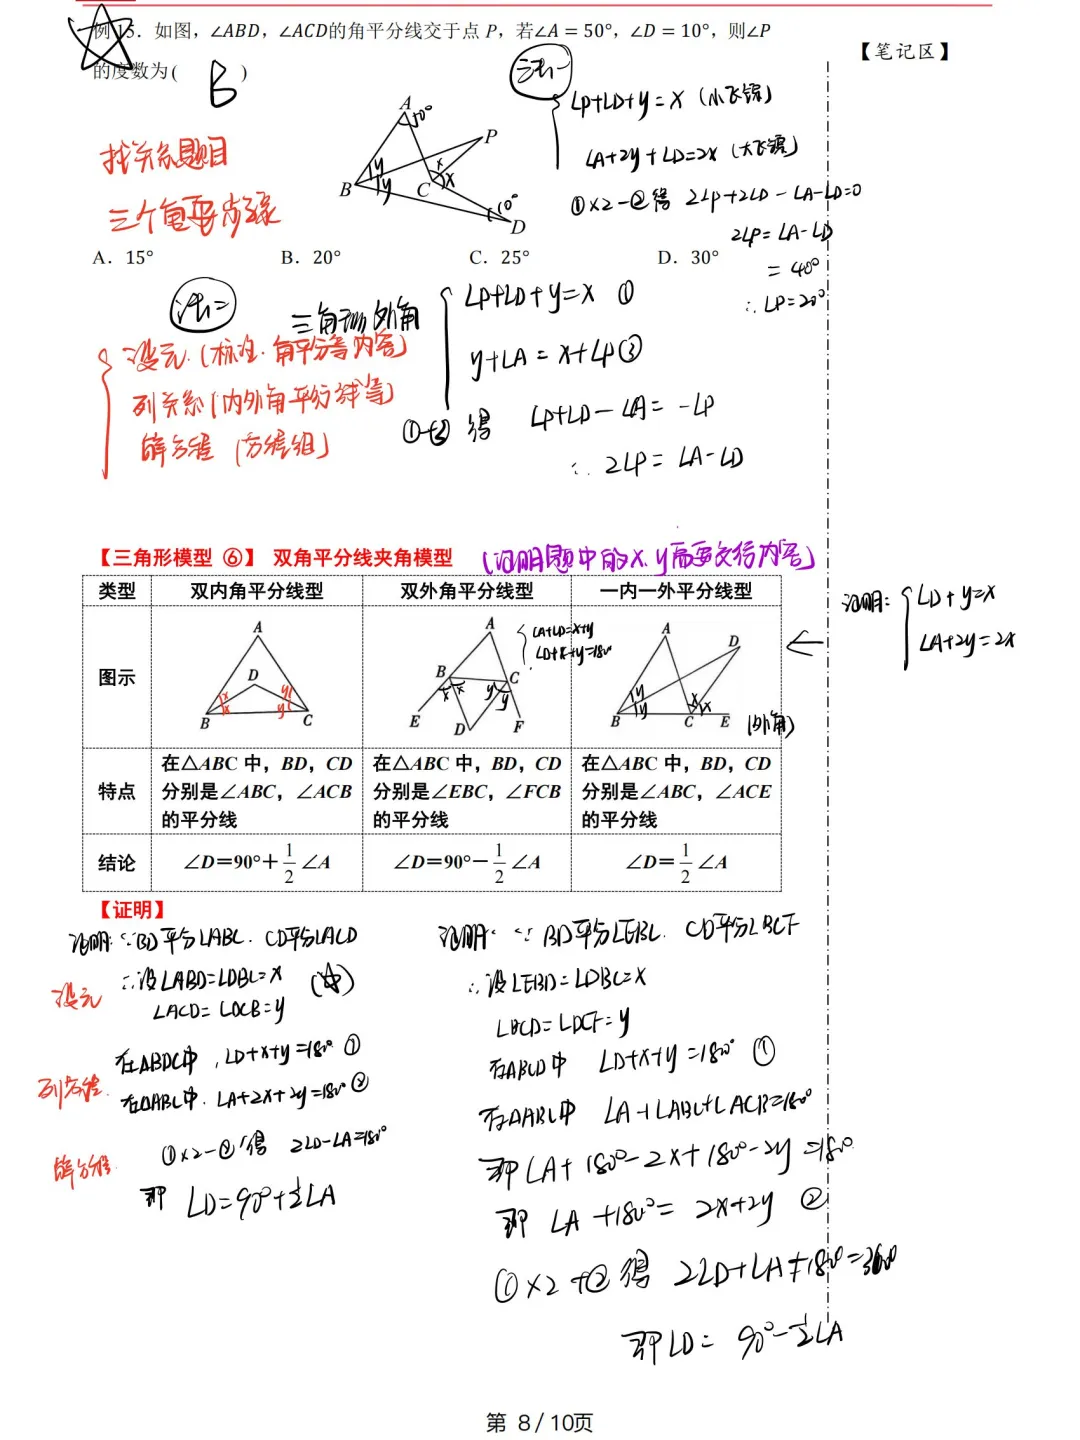 例 15．如图，∠ABD，∠ACD的角平分线交于点 P，若∠A = 50°，∠D = 10°，则∠P
的度数为( B )
【笔记区】
法一
∠P+∠D+y=x (小飞镖)
∠A+2y+∠D=2x (大飞镖)
①×2-②得 2∠P+2∠D-∠A-∠D=0
2∠P=∠A-∠D
=40°
∴∠P=20°
找关系题目
三个角要步骤
A 50°
P
B y y C x x
10°
D
A．15° B．20° C．25° D．30°
法二
三角形外角
∠P+∠D+y=x ①
y+∠A=x+∠P ②
①-②得 ∠P+∠D-∠A=-∠P
∴2∠P=∠A-∠D
设元(标注.角平分等内容)
列关系(内外角平分线等)
解方程 (方程组)
【三角形模型 ⑥】 双角平分线夹角模型 (证明题中的x.y需要交待内容)
类型 双内角平分线型 双外角平分线型 一内一外平分线型
图示
A D B C x x y y
A B C E D F x x y y
∠A+∠D=x+y
∠D+x+y=180°
A D B C E y y x x
(外角)
证明: ∠D+y=x
∠A+2y=2x
特点
在△ABC 中，BD，CD
分别是∠ABC，∠ACB
的平分线
在△ABC 中，BD，CD
分别是∠EBC，∠FCB
的平分线
在△ABC 中，BD，CD
分别是∠ABC，∠ACE
的平分线
结论 ∠D＝90°＋1/2∠A ∠D＝90°－1/2∠A ∠D＝1/2∠A
【证明】
证明:∵BD平分∠ABC.CD平分∠ACD
设元 ∴设∠ABD=∠DBC=x (☆)
∠ACD=∠DCB=y
列方程
在△BDC中,∠D+x+y=180° ①
在△ABC中.∠A+2x+2y=180° ②
解方程
①×2-②得 2∠D-∠A=180°
即 ∠D=90°+1/2∠A
证明: ∵BD平分∠EBC. CD平分∠BCF
∴设∠EBD=∠DBC=x
∠BCD=∠DCF=y
在△BCD中 ∠D+x+y=180° ①
在△ABC中 ∠A+∠ABC+∠ACB=180°
即∠A+180°-2x+180°-2y=180°
即 ∠A+180°=2x+2y ②
①×2+②得 2∠D+∠A+180°=360°
即∠D=90°-1/2∠A
第 8 / 10页